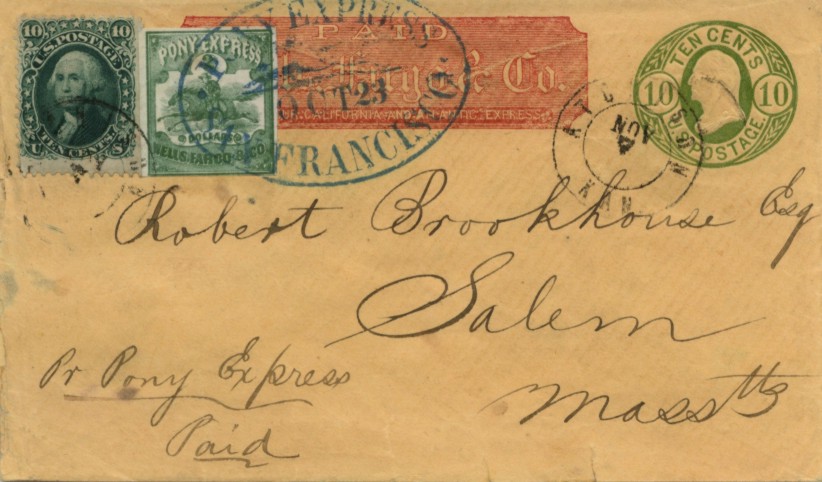 10 10
U.S. POSTAGE
TEN CENTS
U S
PONY EXPRESS
DOLLAR
WELLS, FARGO & CO
PONY EXPRESS
OCT 23
SAN FRANCISCO
PAID
Fargo & Co.
CALIFORNIA AND ATLANTIC EXPRESS
NOV
4
KAN
TEN CENTS
10 10
U.S. POSTAGE.
Robert Brookhouse Esq
Salem
Masstts
Pr Pony Express
Paid